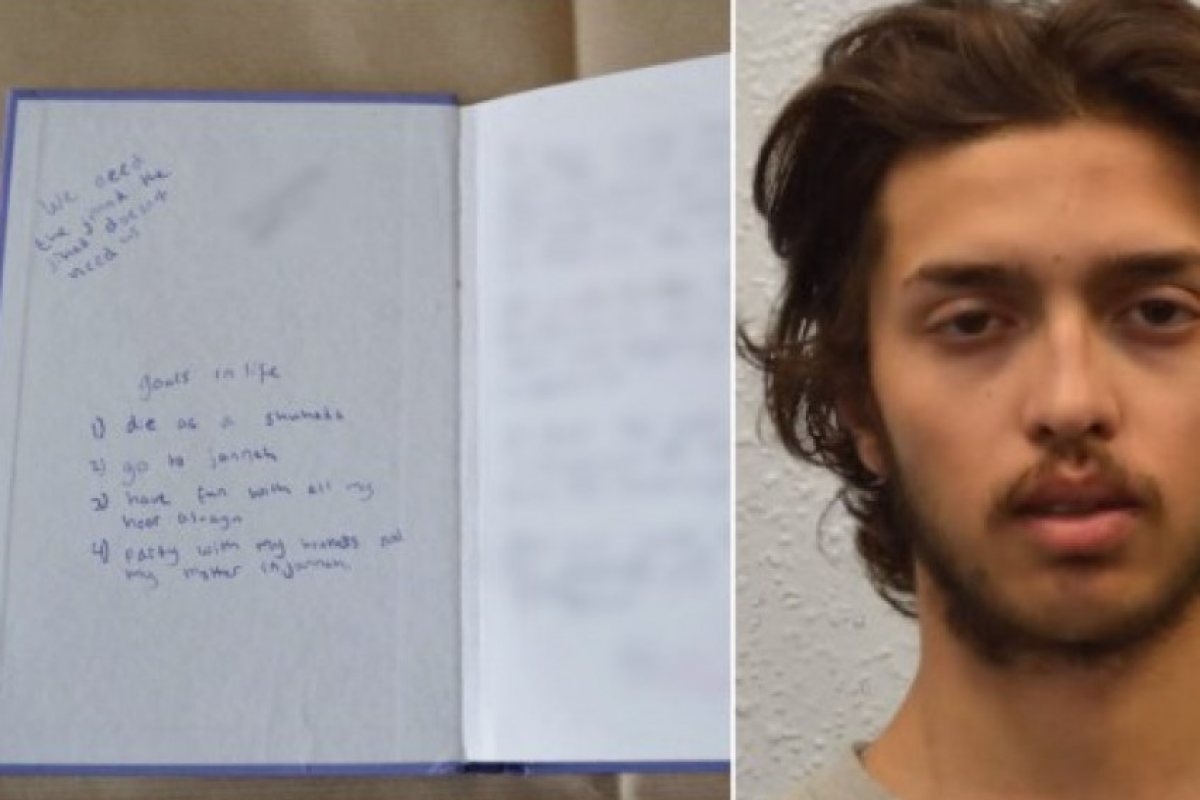 We need
the jihad the
jihad doesn't
need us
goals in life
1) die as a shuhada
2) go to jannah
3) have fun with all my
hoor al-ayn
4) party with my brothers and
my mother in jannah